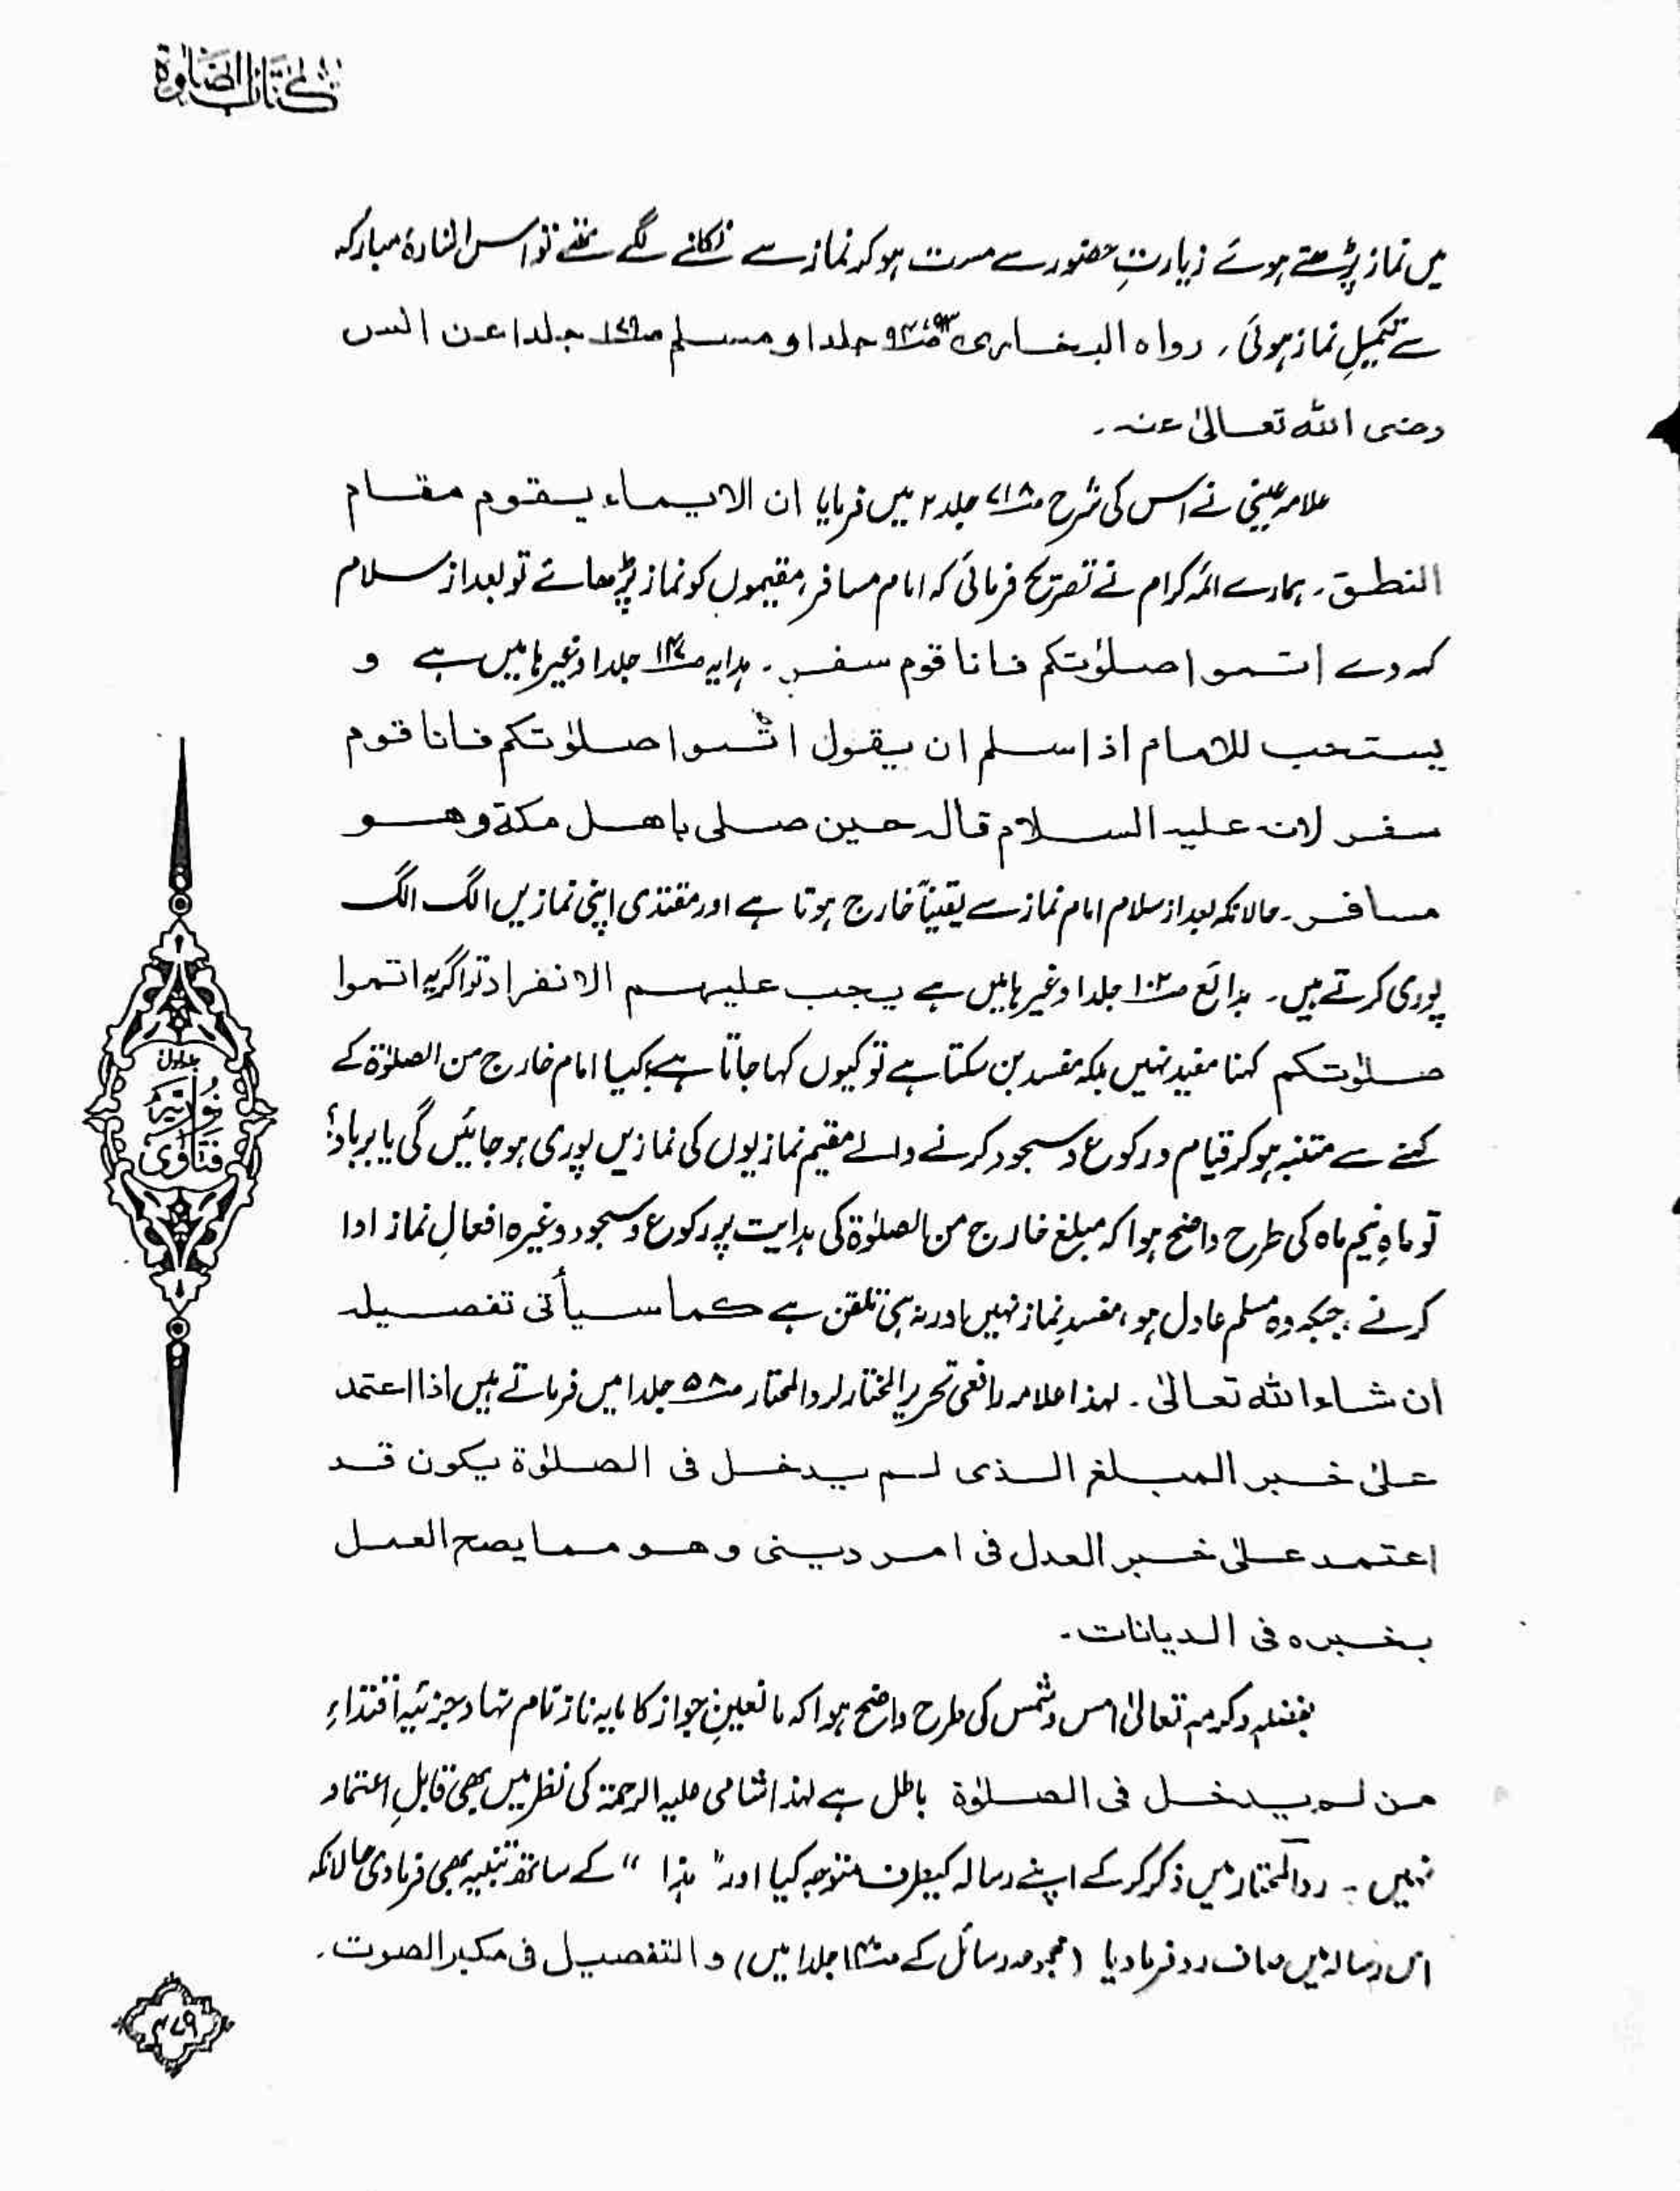 کتاب الصلوٰة
میں نماز پڑھتے ہوئے زیارتِ حضور سے مست ہو کر نماز سے نکلنے لگے تھے تو اس اشارۂ مبارکہ
سے تکمیلِ نماز ہوئی، رواہ البخاری ص۹۳، ۹۴ جلد ا و مسلم ص۱۷۹ جلد ا عن انس
رضی اللہ تعالیٰ عنہ۔
علامہ عینی نے اس کی شرح ص۷۱۸ جلد ۲ میں فرمایا ان الایماء یقوم مقام
النطق۔ ہمارے ائمہ کرام نے تصریح فرمائی کہ امام مسافر، مقیموں کو نماز پڑھائے تو بعد از سلام
کہہ دے اتموا صلوٰتکم فانا قوم سفر۔ ہدایہ ص۱۴۷ جلد ا وغیرہا میں ہے و
یستحب للامام اذا سلم ان یقول اتموا صلوٰتکم فانا قوم
سفر لانہ علیہ السلام قالہ حین صلی باھل مکة وھو
مسافر۔ حالانکہ بعد از سلام امام نماز سے یقیناً خارج ہوتا ہے اور مقتدی اپنی نمازیں الگ الگ
پوری کرتے ہیں۔ بدائع ص۱۰۲ جلد ا وغیرہا میں ہے یجب علیہم الانفراد تو اگر یہ اتموا
صلوٰتکم کہنا مفید نہیں بلکہ مفسد بن سکتا ہے تو کیوں کہا جاتا ہے؟ کیا امام خارج من الصلوٰة کے
کہنے سے متنبہ ہو کر قیام و رکوع و سجود کرنے والے مقیم نمازیوں کی نمازیں پوری ہو جائیں گی یا برباد؟
تو ماہِ نیم ماہ کی طرح واضح ہوا کہ مبلغ خارج من الصلوٰة کی ہدایت پر رکوع و سجود وغیرہ افعالِ نماز ادا
کرنے، جبکہ وہ مسلم عادل ہو، مفسدِ نماز نہیں اور نہ ہی تلقن ہے کما سیأتی تفصیلہ
ان شاء اللہ تعالیٰ۔ لہذا علامہ رافعی تحریر المختار لرد المحتار ص۵۸ جلد ا میں فرماتے ہیں اذا اعتمد
علیٰ خبر المبلغ الذی لم یدخل فی الصلوٰة یکون قد
اعتمد علیٰ خبر العدل فی امر دینی وھو مما یصح العمل
بخبرہ فی الدیانات۔
بفضلہ وکرمہ تعالیٰ امس و شمس کی طرح واضح ہوا کہ مانعینِ جواز کا مایہ ناز نام نہاد جزئیہ اقتداءِ
من لم یدخل فی الصلوٰة باطل ہے لہذا شامی علیہ الرحمة کی نظر میں بھی قابلِ اعتماد
نہیں۔ ردالمحتار میں ذکر کر کے اپنے رسالہ کیطرف متوجہ کیا اور "ہذا" کے ساتھ تنبیہ بھی فرما دی حالانکہ
اس رسالہ میں صاف رد فرما دیا (مجموعہ رسائل کے جلد ا میں) والتفصیل فی مکبر الصوت۔
جلد اول
فتاویٰ نوریہ
۴۷۹